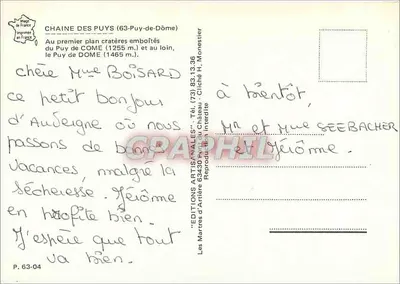 image de France
imprimée en France
CHAINE DES PUYS (63-Puy-de-Dôme)
Au premier plan cratères emboîtés
du Puy de COME (1255 m.) et au loin,
le Puy de DOME (1465 m.).
chère Mme BOISARD
ce petit bonjour
d'Auvergne où nous
passons de bonnes
vacances, malgré la
sécheresse. Jérôme
en profite bien.
J'espère que tout
va bien.
P. 63-04
"EDITIONS ARTISANALES" - Tél. (73) 83.13.36
Les Martres d'Artière 63430 Pont du Château - Cliché H. Monestier
Reproduction interdite
à bientôt,
Mr et Mme SEEBACHER
et Jérôme.
CPAPHIL